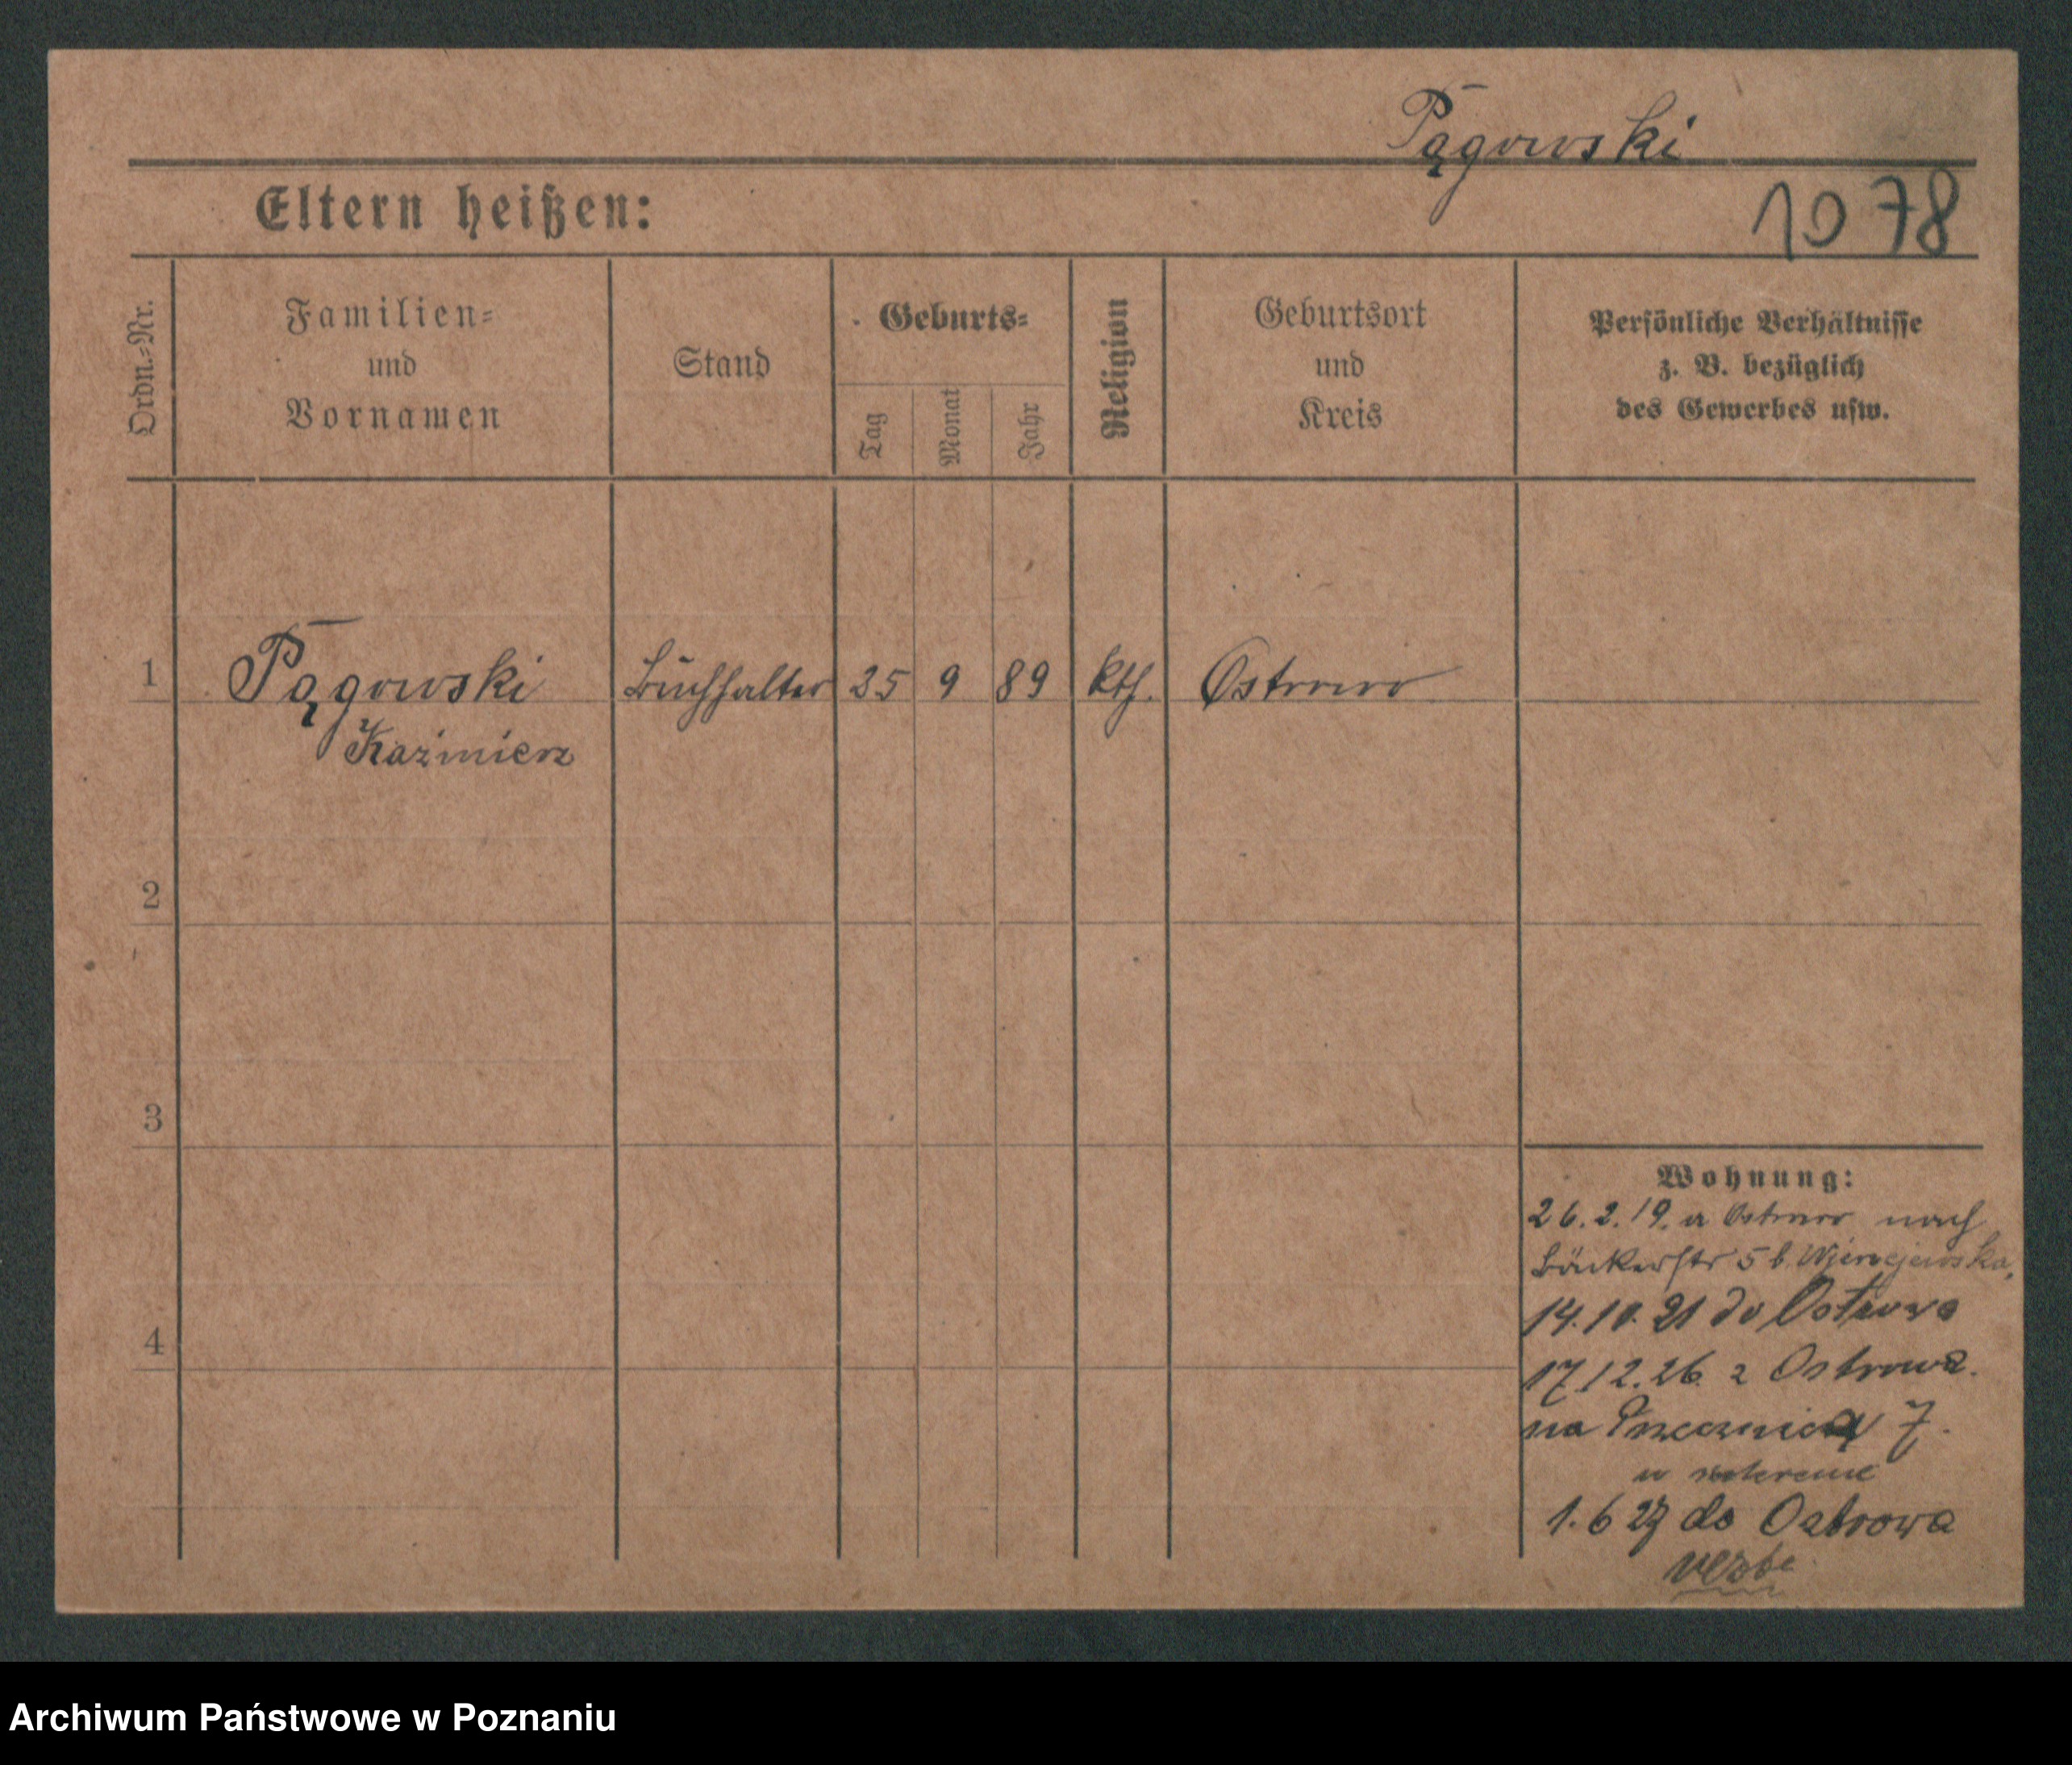 Pągowski
Eltern heißen:
1078
Ordn.-Nr.
Familien-
und
Vornamen
Stand
Geburts-
Tag
Monat
Jahr
Religion
Geburtsort
und
Kreis
Persönliche Verhältnisse
z. B. bezüglich
des Gewerbes usw.
1 Pągowski Buchhalter 25 9 89 kth. Ostrowo
Kazimierz
2
3
4
Wohnung:
26. 2. 19. a Ostrowo nach
Bäckerstr 5 b.
14. 10. 21 do Ostrowa
17.12.26. z Ostrowa.
na Przecznica 7.
1. 6 27 do Ostrowa
Archiwum Państwowe w Poznaniu